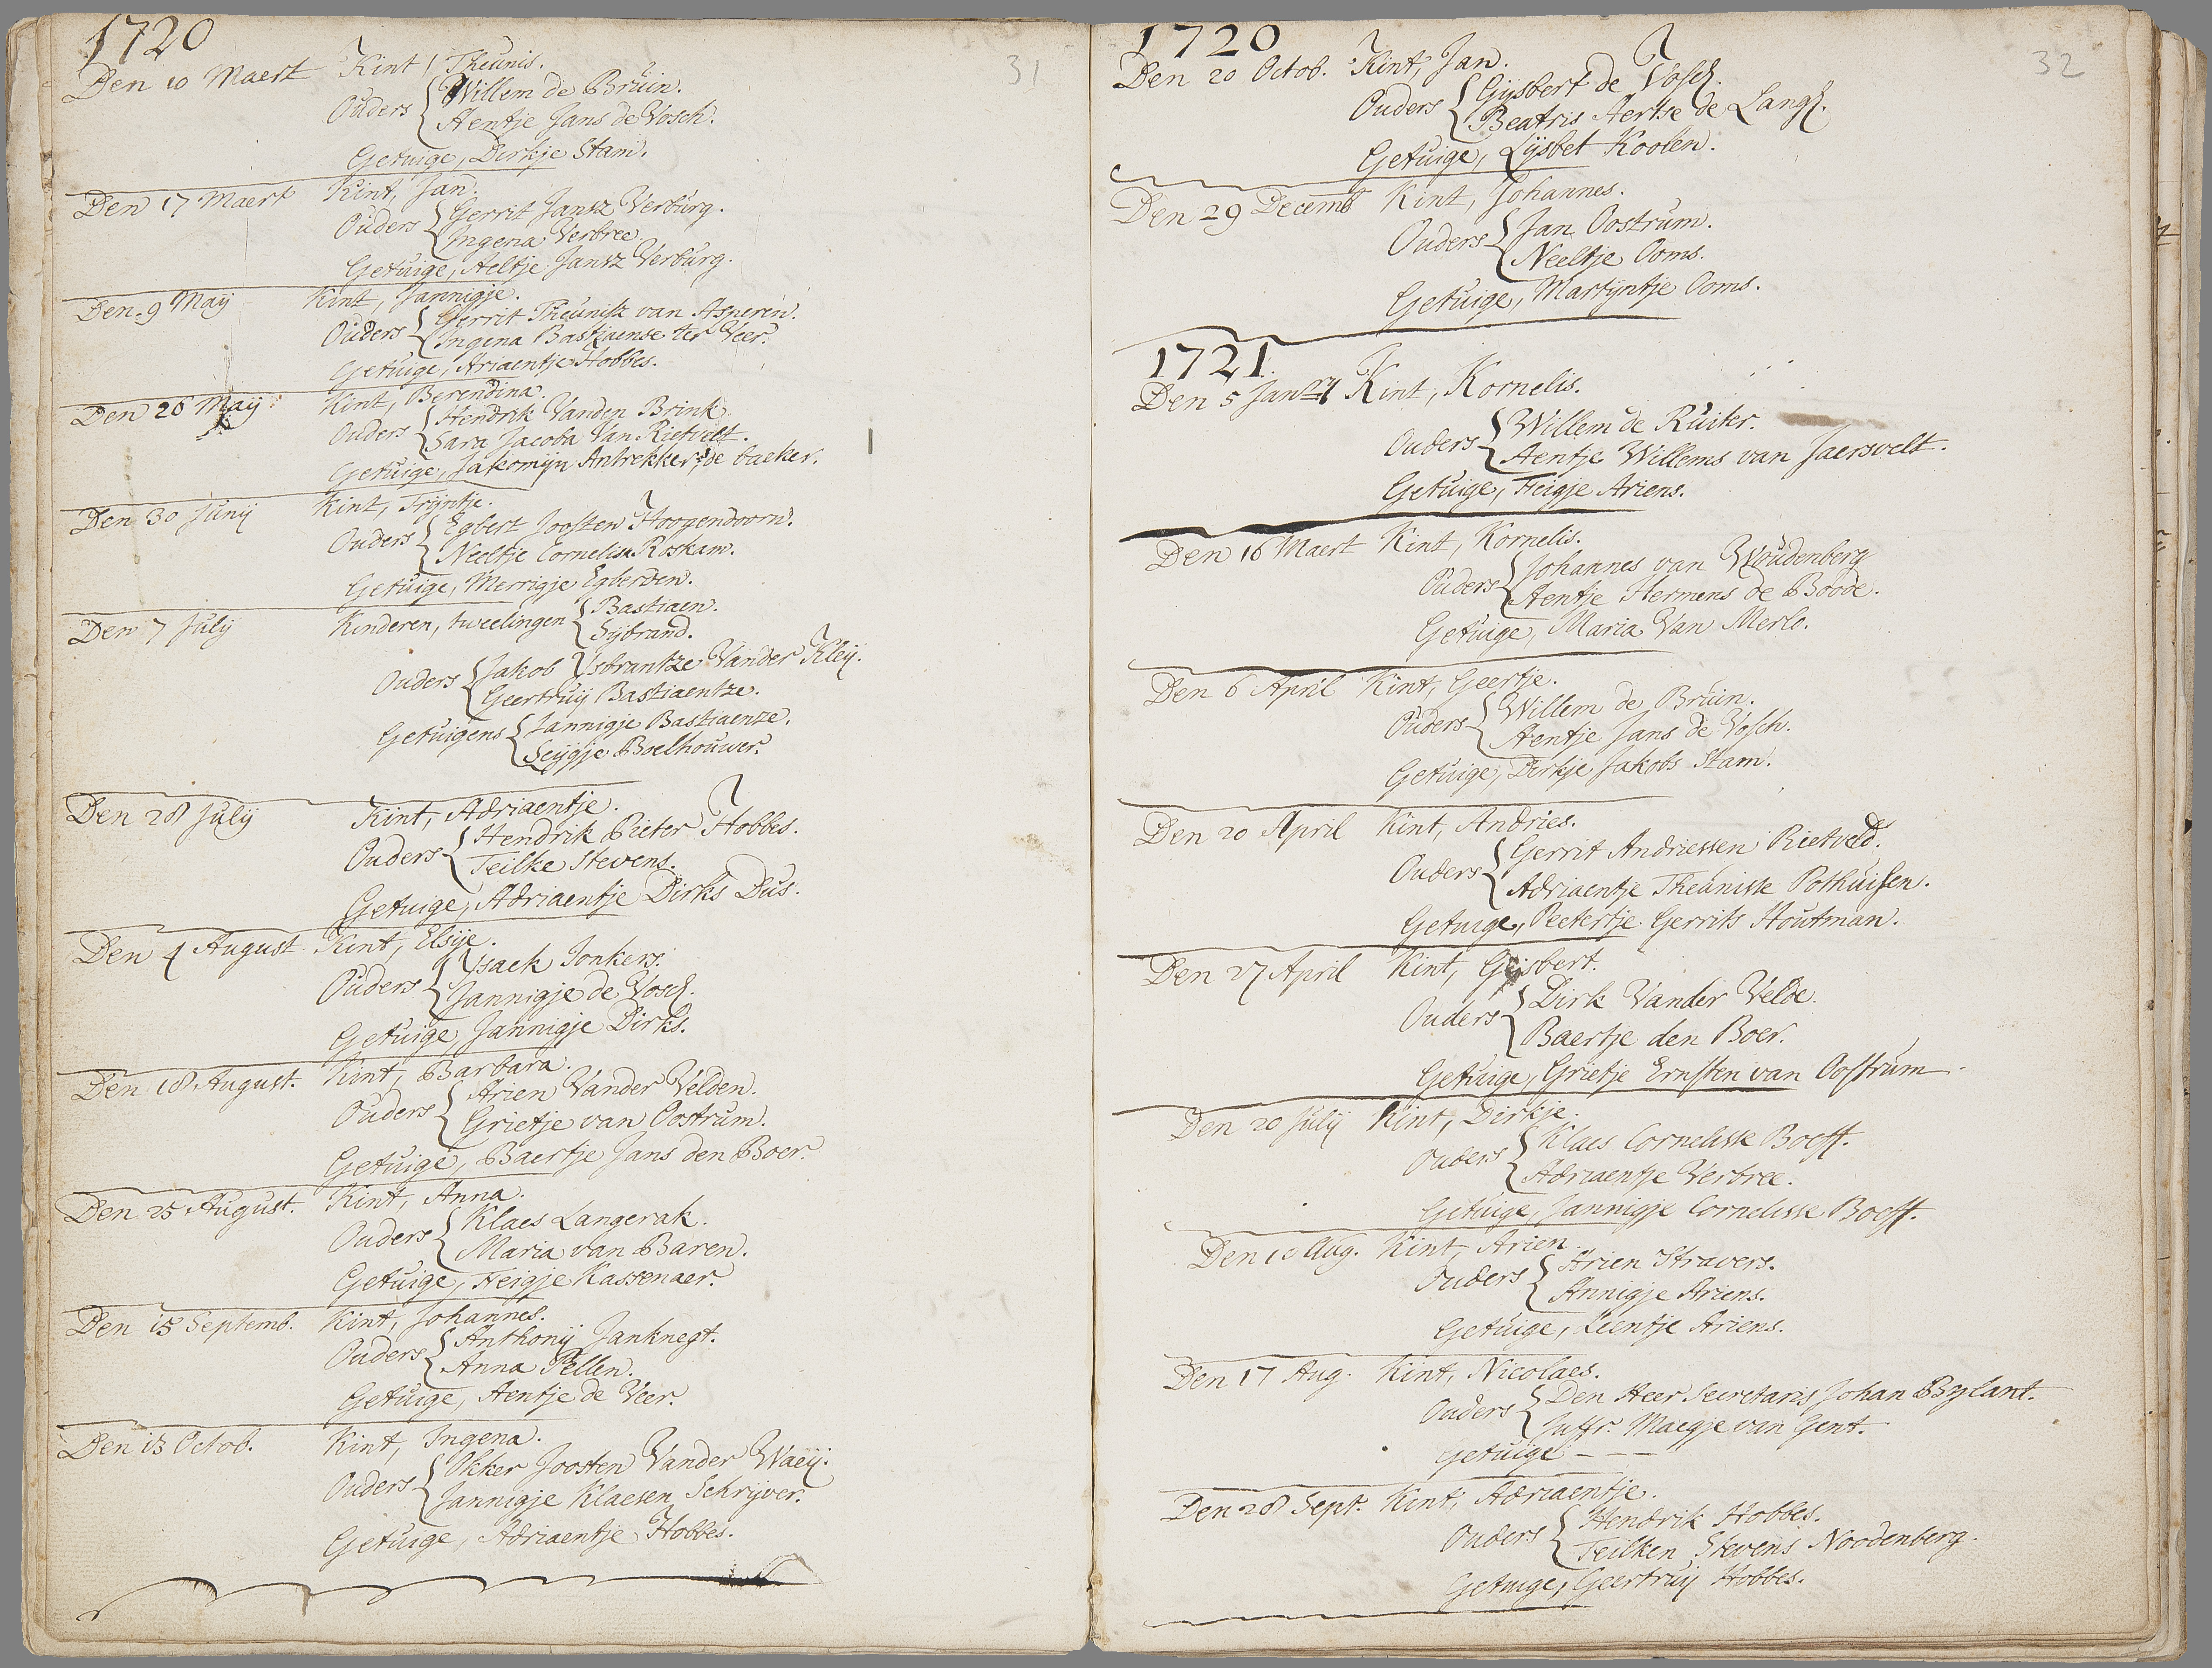 1720
31
Den 10 Maert Kint, Theunis.
Ouders { Willem de Bruin.
Aentje Jans de Vosch.
Getuige, Dirkje Stam.
Den 17 Maert Kint, Jan.
Ouders { Gerrit Jansz Verburg.
Ingena Verbree.
Getuige, Aeltje Jansz Verburg.
Den 9 Maij Kint, Jannigje.
Ouders { Gerrit Theunisz van Asperen.
Ingena Bastiaense ter Veer.
Getuige, Ariaentje Hobbes.
Den 26 Maij Kint, Berendina.
Ouders { Hendrik Vanden Brink.
Sara Jacoba Van Rietvelt.
Getuige, Jakomijn Antrekker, de baeker.
Den 30 Junij Kint, Trijntje.
Ouders { Egbert Joosten Hoogendoorn.
Neeltje Cornelisse Roskam.
Getuige, Merrigje Egberden.
Den 7 July Kinderen, tweelingen { Bastiaen.
Sijbrand.
Ouders { Jakob Ysbrantze Vander Kleij.
Geertruij Bastiaentze.
Getuigens { Jannigje Bastiaenze.
Seijgje Boelhouwer.
Den 28 Julij Kint, Adriaentje.
Ouders { Hendrik Pieter Hobbes.
Teilke Stevens.
Getuige, Adriaentje Dirks Dus.
Den 4 August Kint, Elsije.
Ouders { Ysaek Jonkers.
Jannigje de Vosch.
Getuige, Jannigje Dirks.
Den 18 August. Kint, Barbara.
Ouders { Arien Vander Velden.
Grietje van Oostrum.
Getuige, Baertje Jans den Boer.
Den 25 August. Kint, Anna.
Ouders { Klaes Langerak.
Maria van Baren.
Getuige, Heigje Kassenaer.
Den 15 Septemb. Kint, Johannes.
Ouders { Anthonij Janknegt.
Anna Pellen.
Getuige, Aentje de Veer.
Den 13 Octob. Kint, Ingena.
Ouders { Okker Joosten Vander Waeij.
Jannigje Klaesen Schrijver.
Getuige, Adriaentje Hobbes.
1720
32
Den 20 Octob. Kint, Jan.
Ouders { Gijsbert de Vosch.
Beatris Aertse de Lange.
Getuige, Lijsbet Koolen.
Den 29 Decemb Kint, Johannes.
Ouders { Jan Oostrum.
Neeltje Ooms.
Getuige, Martijntje Ooms.
1721.
Den 5 Janry Kint, Kornelis.
Ouders { Willem de Ruiter.
Aentje Willems van Jaersvelt.
Getuige, Heigje Ariens.
Den 16 Maert Kint, Kornelis.
Ouders { Johannes van Woudenberg
Aentje Hermens de Boode.
Getuige, Maria Van Merle.
Den 6 April Kint, Geertje.
Ouders { Willem de Bruin.
Aentje Jans de Vosch.
Getuige, Dirkje Jakobs Stam.
Den 20 April Kint, Andries.
Ouders { Gerrit Andriessen Rietveld.
Adriaentje Theunisse Pothuisen.
Getuige, Peetertje Gerrits Houtman.
Den 27 April Kint, Gijsbert.
Ouders { Dirk Vander Velde.
Baertje den Boer.
Getuige, Grietje Ernsten van Oostrum.
Den 20 Julij Kint, Dirkje.
Ouders { Klaes Cornelisse Boeff.
Adriaentje Verbree.
Getuige, Jannigje Cornelisse Boeff.
Den 10 Aug. Kint, Arien
Ouders { Arien Stravers.
Annigje Ariens.
Getuige, Leentje Ariens.
Den 17 Aug. Kint, Nicolaes.
Ouders { Den Heer Secretaris Johan Bylant.
Juffr. Maegje van Gent.
Getuige - - -
Den 28 Sept. Kint, Adriaentje.
Ouders { Hendrik Hobbes.
Teilken Stevens Noodenberg.
Getuige, Geertruij Hobbes.